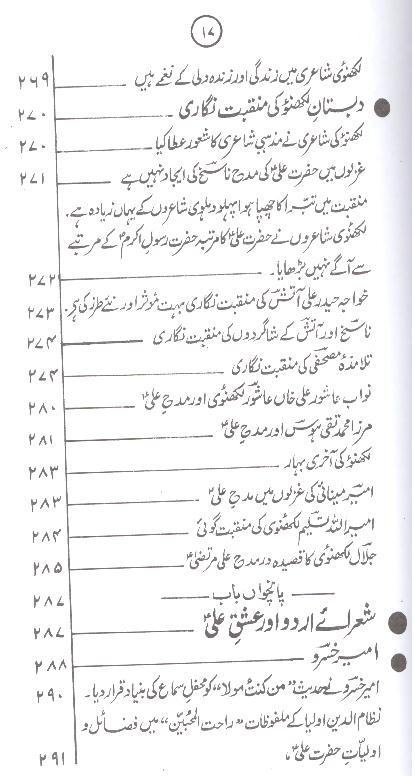 ۱۷
لکھنوی شاعری میں زندگی اور زندہ دلی کے نغمے ہیں ۲۶۹
دبستانِ لکھنؤ کی منقبت نگاری ۲۷۰
لکھنؤ کی شاعری نے مذہبی شاعری کا شعور عطا کیا ۲۷۰
غزلوں میں حضرت علیؑ کی مدح ناسخؔ کی ایجاد نہیں ہے ۲۷۱
منقبت میں تبرّا کا چھپا ہوا پہلو دہلوی شاعروں کے یہاں زیادہ ہے۔
لکھنوی شاعروں نے حضرت علیؑ کا مرتبہ حضرت رسولِ اکرمؐ کے مرتبے
سے آگے نہیں بڑھایا۔ ۲۷۲
خواجہ حیدر علی آتشؔ کی منقبت نگاری بہت مؤثر اور نئے طرز کی ہے۔ ۲۷۳
ناسخؔ اور آتشؔ کے شاگردوں کی منقبت نگاری ۲۷۴
تلامذۂ مصحفیؔ کی منقبت نگاری ۲۷۴
نواب عاشور علی خاں عاشورؔ لکھنوی اور مدحِ علیؑ ۲۸۰
مرزا محمد تقی ہوسؔ اور مدحِ علیؑ ۲۸۱
لکھنؤ کی آخری بہار ۲۸۳
امیرؔ مینائی کی غزلوں میں مدحِ علیؑ ۲۸۳
امیر اللہ تسلیمؔ لکھنوی کی منقبت گوئی ۲۸۴
جلالؔ لکھنوی کا قصیدہ در مدحِ علی مرتضیٰؑ ۲۸۵
پانچواں باب ۲۸۷
شعرائے اردو اور عشقِ علیؑ ۲۸۷
امیر خسروؔ ۲۸۸
امیر خسروؔ نے حدیث "من کنت مولا" کو محفلِ سماع کی بنیاد قرار دیا۔ ۲۹۰
نظام الدین اولیا کے ملفوظات "راحت المحبّین" میں فضائل و
اولیّاتِ حضرت علیؑ۔ ۲۹۱